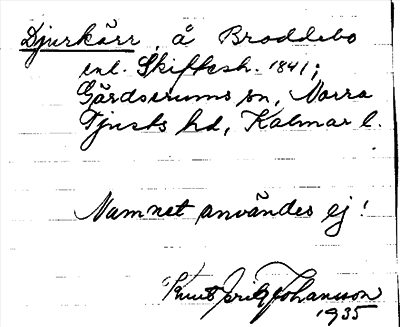 Djurkärr, å Broddebo
enl. Skiftesh. 1841;
Gärdserums sn, Norra
Tjusts hd, Kalmar l.
Namnet användes ej!
Knut Johansson
1935